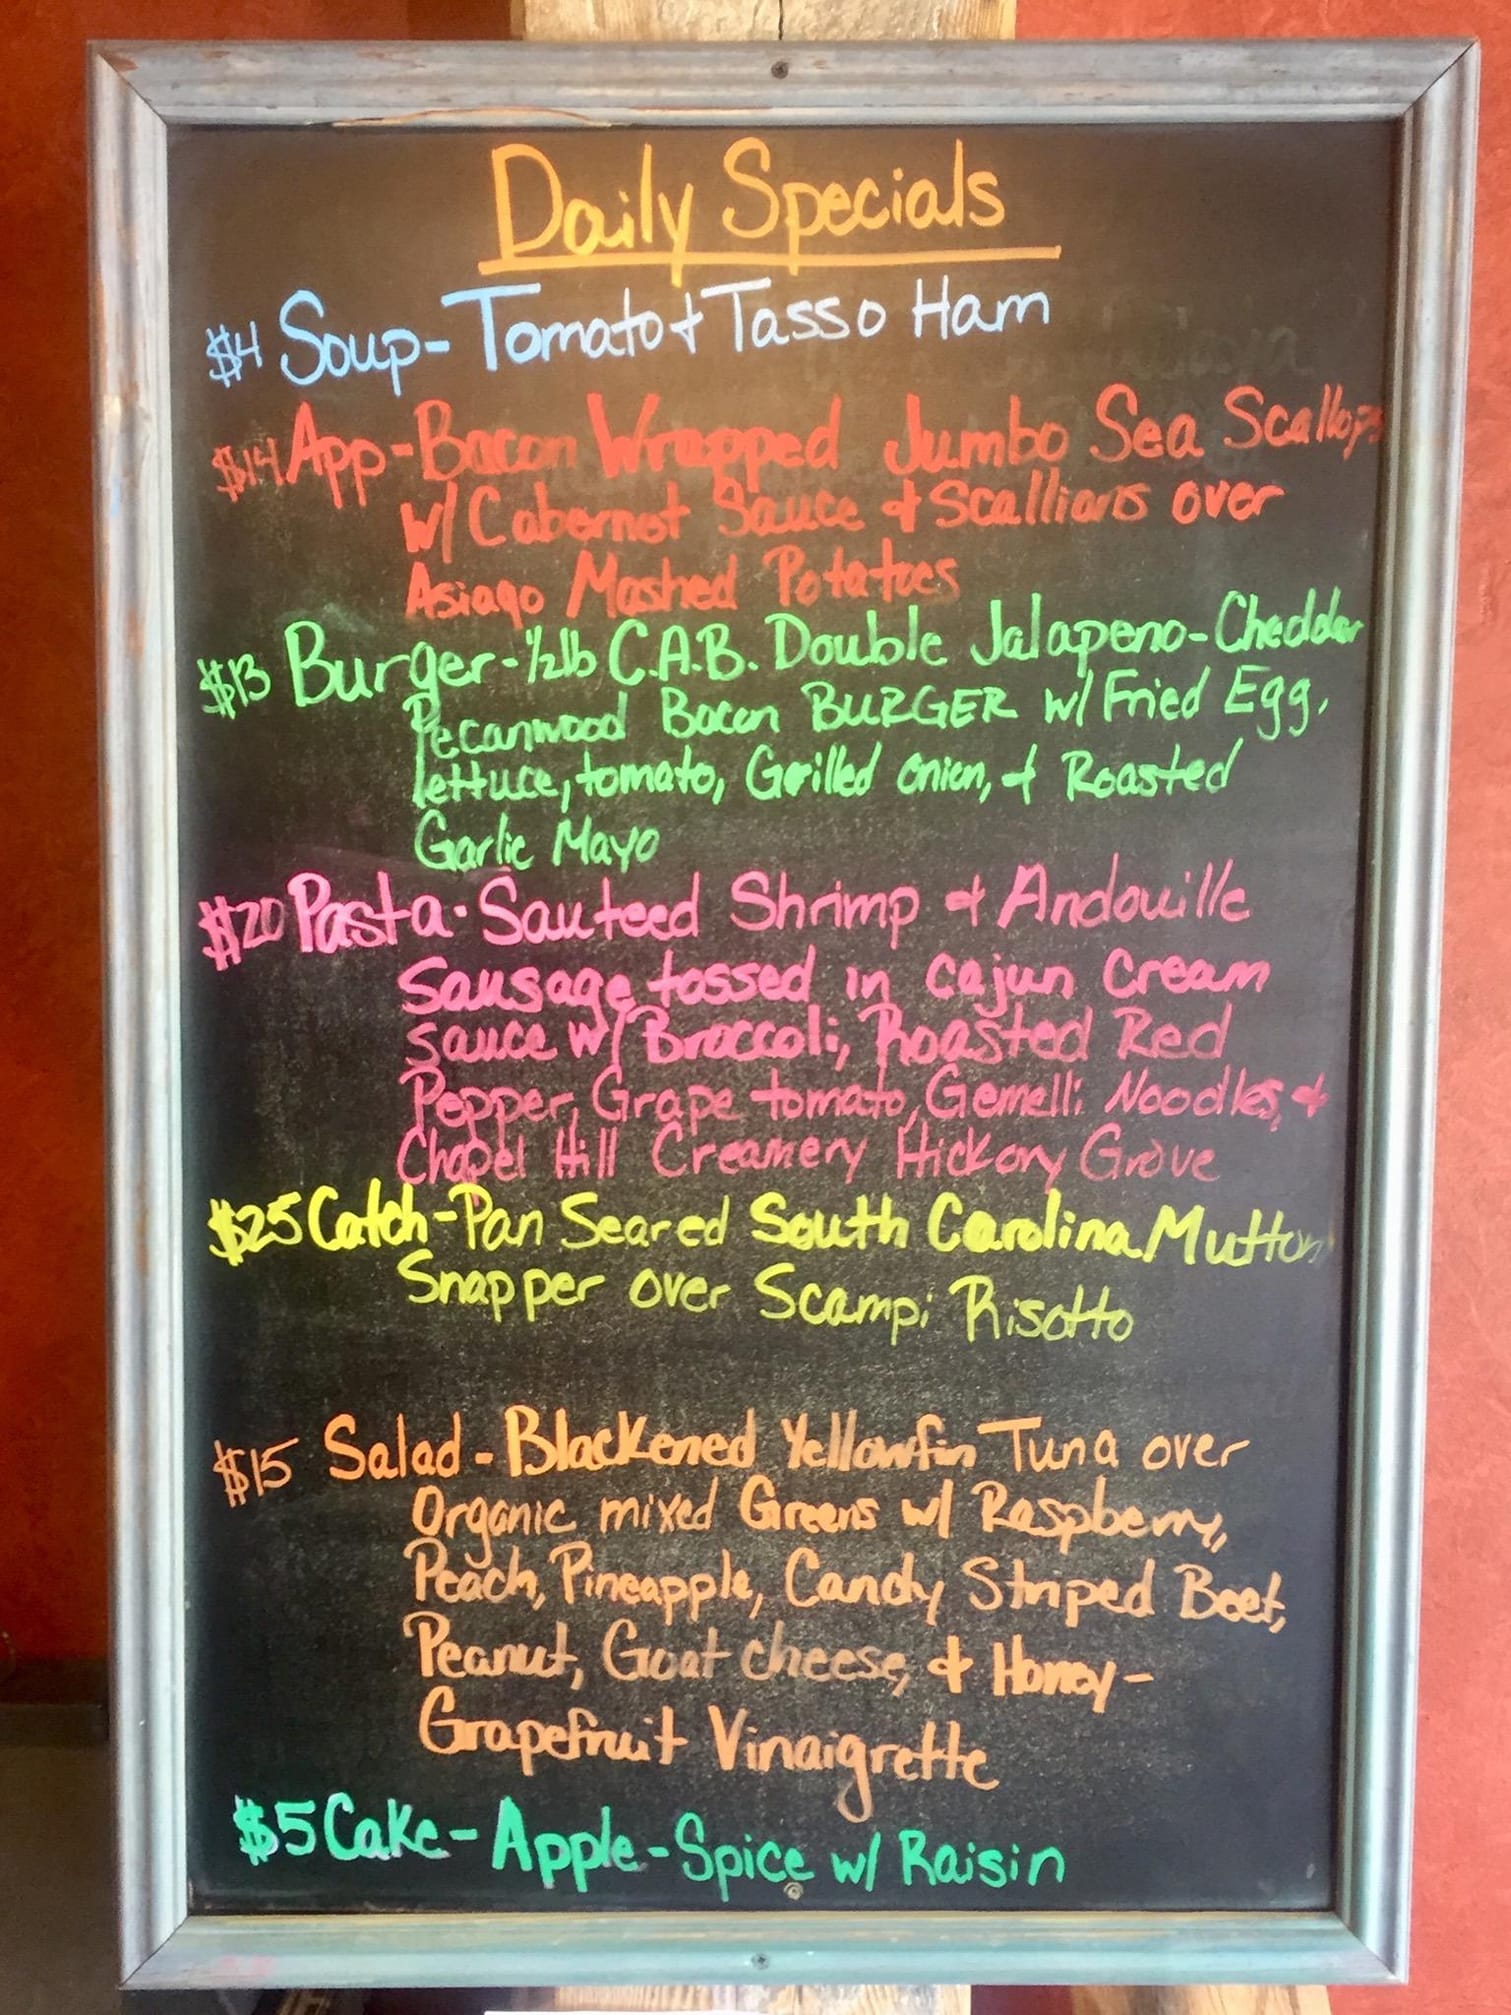 Daily Specials
$4 Soup - Tomato & Tasso Ham
$14 App - Bacon Wrapped Jumbo Sea Scallops
w/ Cabernet Sauce & Scallions over
Asiago Mashed Potatoes
$13 Burger - 1/2lb C.A.B. Double Jalapeno-Cheddar
Pecanwood Bacon BURGER w/ Fried Egg,
lettuce, tomato, Grilled onion, & Roasted
Garlic Mayo
$20 Pasta - Sauteed Shrimp & Andouille
Sausage tossed in Cajun Cream
sauce w/ Broccoli, Roasted Red
Pepper, Grape tomato, Gemelli Noodles, &
Chapel Hill Creamery Hickory Grove
$25 Catch - Pan Seared South Carolina Mutton
Snapper over Scampi Risotto
$15 Salad - Blackened Yellowfin Tuna over
Organic mixed Greens w/ Raspberry,
Peach, Pineapple, Candy Striped Beet,
Peanut, Goat cheese, & Honey-
Grapefruit Vinaigrette
$5 Cake - Apple-Spice w/ Raisin